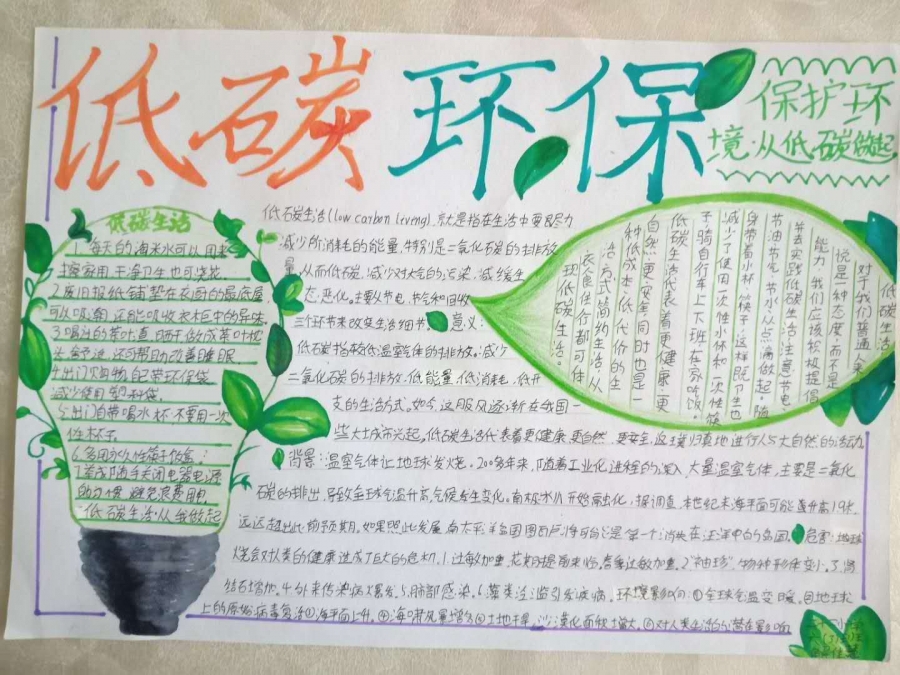 低碳环保
保护环
境·从低碳做起
低碳生活
1.每天的淘米水可以用来
擦家用.干净卫生也可浇花
2.废旧报纸铺垫在衣柜的最底层
可以吸潮,还能吸收衣柜中的异味.
3.喝过的茶叶直晒干做成茶叶枕
头.舒适,还可帮助改善睡眠
4.出门购物自带环保袋
减少使用塑料袋.
5.出门自带喝水杯.不要用一次
性杯子.
6.多用永久性筷子饭盒:
7.养成随手关闭电器电源
的习惯 避免浪费用电.
低碳生活从我做起
低碳生活(low carbon liveng)就是指在生活中要尽力
减少所消耗的能量.特别是二氧化碳的排放
量.从而低碳,减少对大气的污染.减缓生
态.恶化.主要从节电、节气和回收
三个环节来改变生活细节.意义:
低碳指较低温室气体的排放.减少
二氧化碳的排放.低能量.低消耗.低开
支的生活方式.如今,这股风逐渐在我国一
些大城市兴起.低碳生活代表着更健康.更自然.更安全.返璞归真地进行人与大自然的活动
低碳生活
对于我们普通人来
说是一种态度.而不是
能力.我们应该积极提倡
并去实践低碳生活.注意节电
节油节气.节水从点滴做起.随
身带着水杯.筷子.这样既卫生也
减少了使用一次性水杯和一次性筷
子骑自行车上下班.在家吃饭.
低碳生活代表着更健康.更
自然.更安全.同时也是一
种低成本.低代价的生
活方式.简约生活.从
衣食住行都可体
现低碳生活。
背景:温室气体让地球发烧.200多年来,随着工业化进程的深入.大量温室气体,主要是二氧化
碳的排出,导致全球气温升高,气候发生变化.南极冰川开始融化.据调查.本世纪末海平面可能
远远超出此前预期.如果照此发展.南太平洋岛国图瓦卢将可能是第一个消失在汪洋中的岛国.危害:地球
烧会对人类的健康造成巨大的危机.1.过敏加重.花期提前来临.春季过敏加重.2."袖珍".物种形体变小.3.肾
结石增加.4.外来传染病爆发.5.肺部感染.6.藻类泛滥引发疾病.环境影响:①全球气温变暖.②地球
上的原始病毒复活③海平面上升.④海啸风暴增多⑤土地干旱,沙漠化面积增大.⑥对人类生活的潜在影响